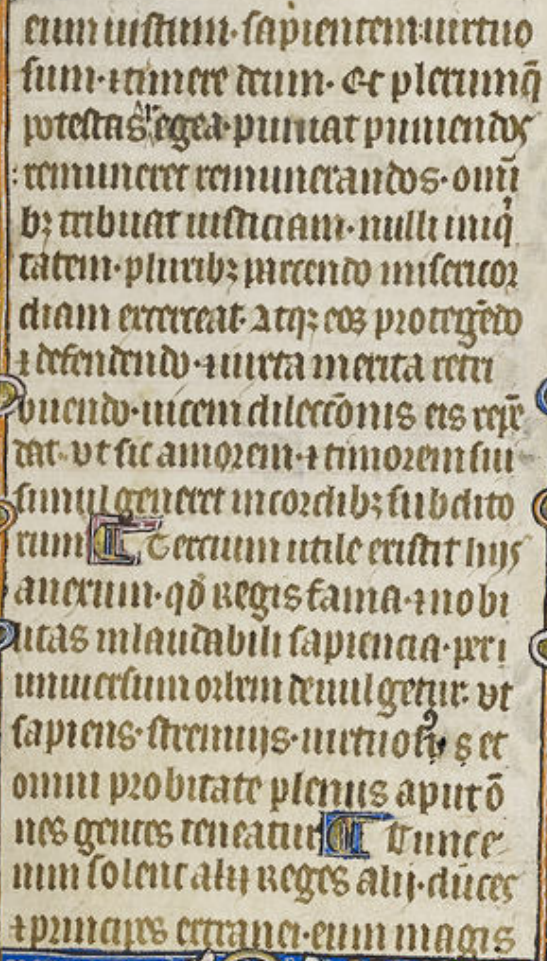 eum iustum· sapientem· uirtuo
sum· ⁊ timere deum· Et plerumq̄
potestas regea· puniat puniendos
remuneret remunerandos· omī
bꝫ tribuat iusticiam· nulli iniq̇
tatem· pluribꝫ parcendo misericor
diam exerceat· Atqꝫ eos protegēdo
⁊ defendendo· ⁊ iuxta merita retri
buendo· uicem dilecc̄onis eis repē
dat· vt sic amorem· ⁊ timorem sui
simul generet in cordibꝫ subdito
rum Tercium utile existit huic
anexum· qđ Regis fama· ⁊ nobi
litas in laudabili sapiencia· per i
uniuersum orbem deuulgetur· vt
sapiens· strenuus· uirtuosꝰ et
omni probitate plenus aput ō
nes gentes teneatur Tunc e
nim solent alij Reges alij· duces
⁊ principes extranei· eum magis